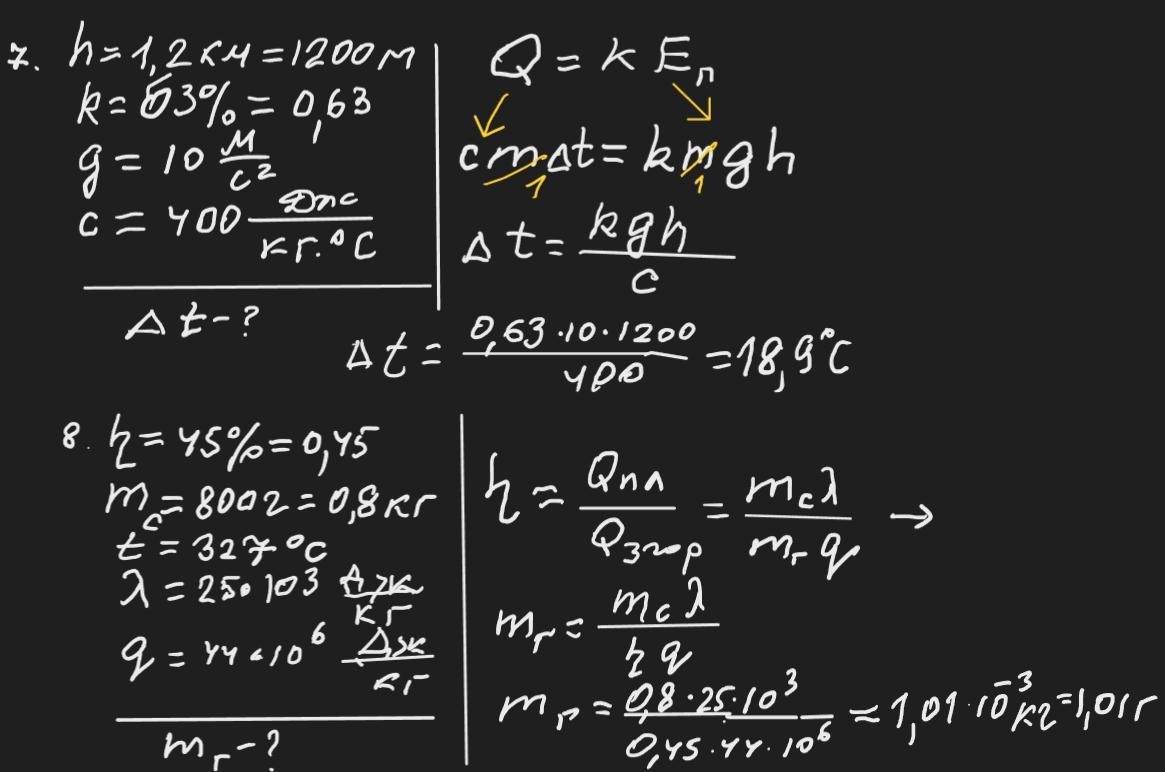 7. h = 1,2 км = 1200 м
k = 63% = 0,63
g = 10 м/с²
c = 400 Дж/кг·°C
Δt - ?
Q = k Eп
c m Δt = k m g h
1 1
Δt = kgh/c
Δt = 0,63·10·1200/400 = 18,9°C
8. η = 45% = 0,45
mс = 800г = 0,8 кг
t = 327°C
λ = 25·10³ Дж/кг
q = 44·10⁶ Дж/кг
mг - ?
η = Qпл/Qзгор = mсλ/mг q →
mг = mс λ/η q
mг = 0,8·25·10³/0,45·44·10⁶ = 1,01·10⁻³ кг = 1,01г